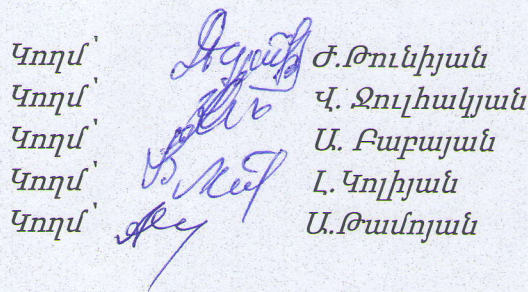 Կողմ՝ Ժ.Թունիյան
Կողմ՝ Վ. Ջուլհակյան
Կողմ՝ Ա. Բաբայան
Կողմ՝ Լ.Կոլիյան
Կողմ՝ Ա.Թամոյան